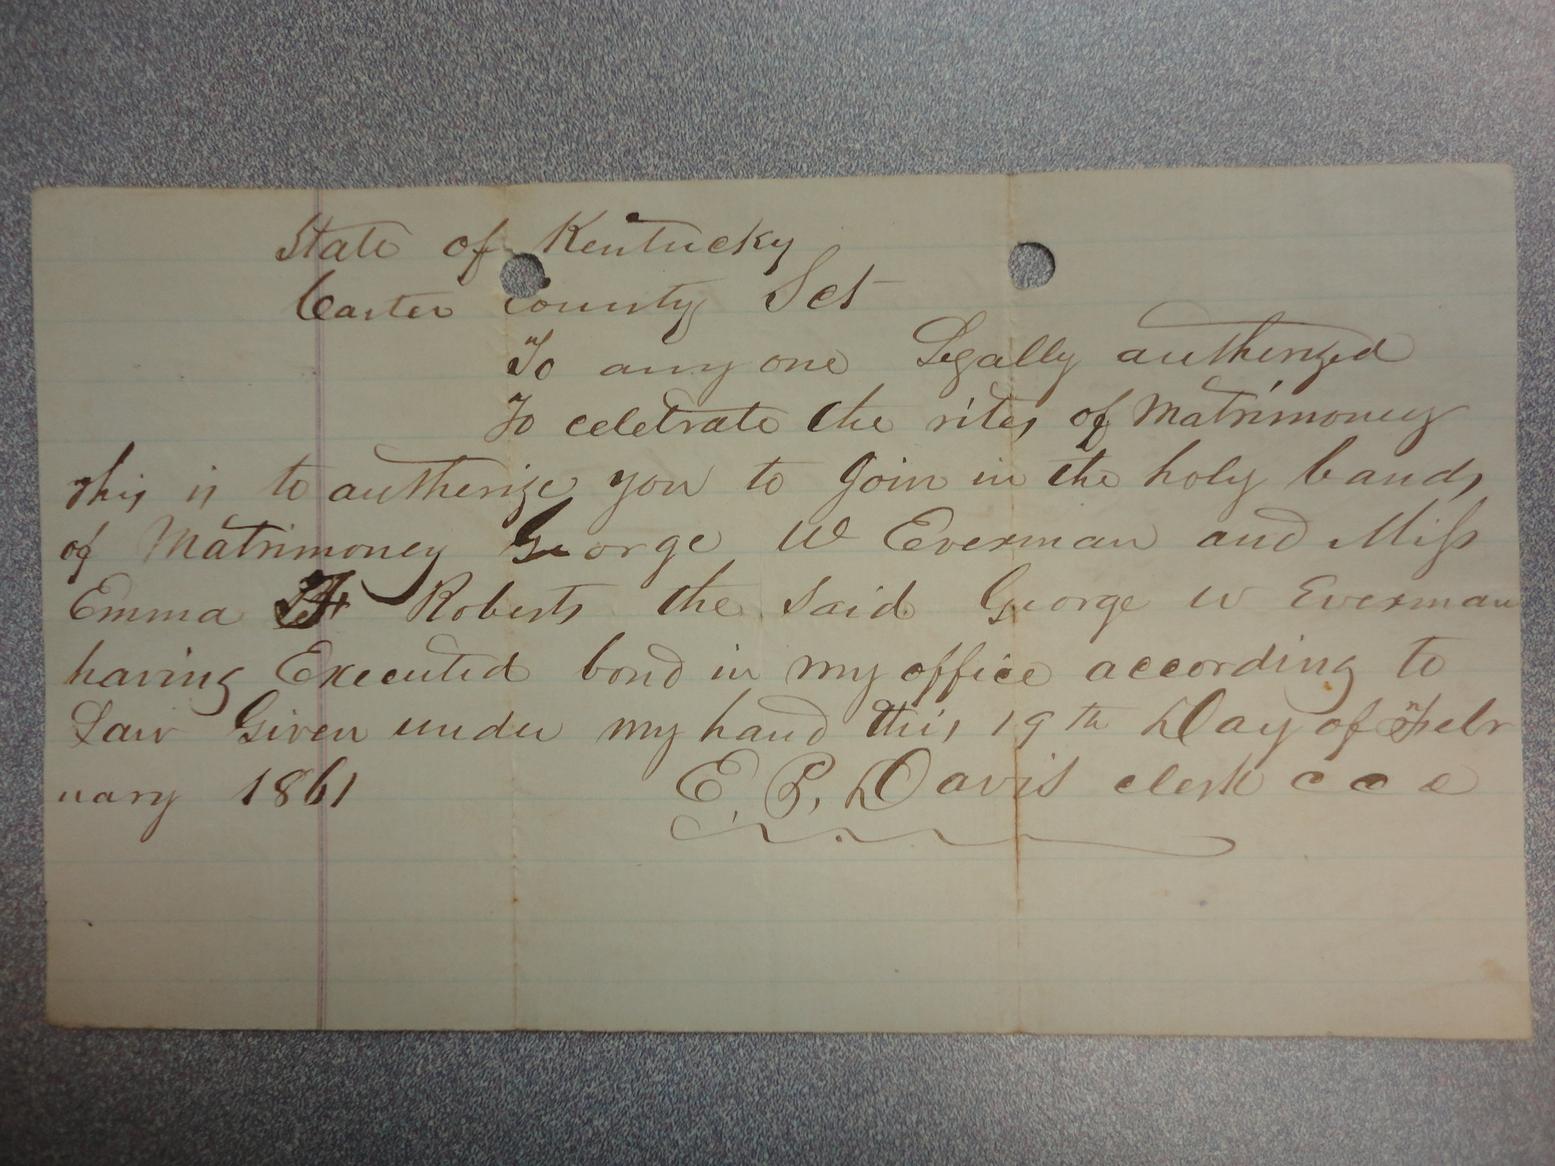 State of Kentucky
Carter County Sct
To any one Legally autherized
To celebrate the rites of Matrimoney
this is to autherize you to Join in the holy bands
of Matrimoney George W Everman and Miss
Emma Roberts the said George W Everman
having Executed bond in my office according to
Law Given under my hand this 19th Day of Febr
uary 1861 E. P. Davis clerk c c c